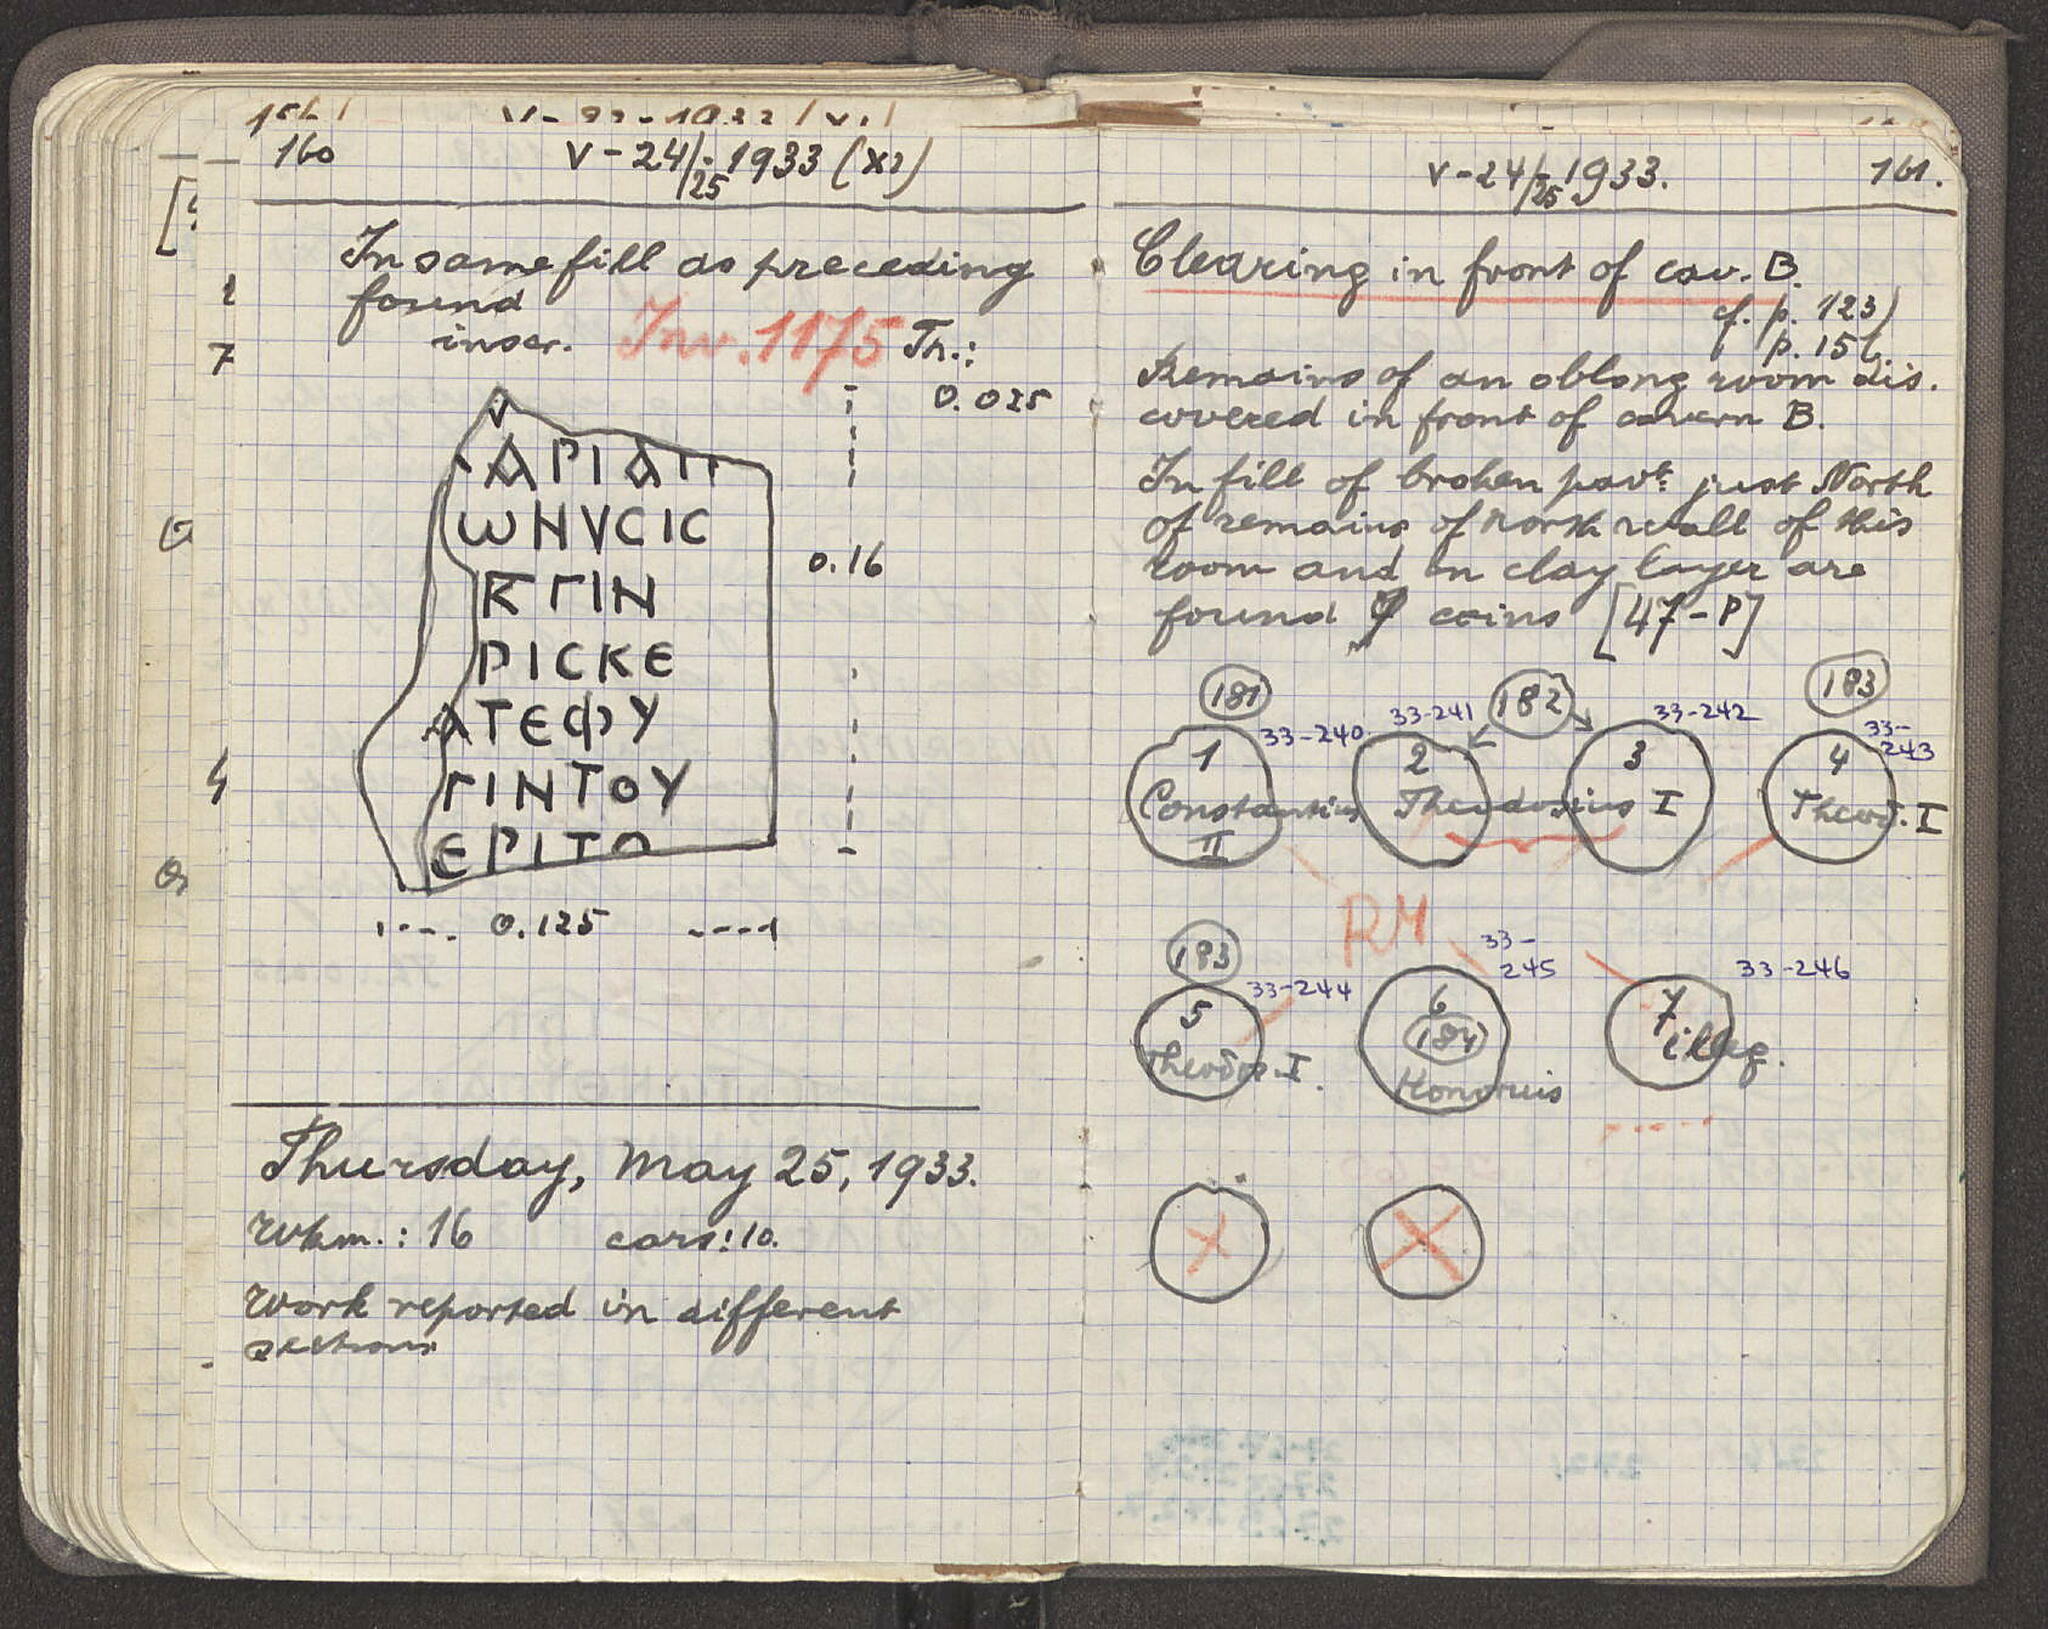 160
V-24/25-1933 (XI)
In same fill as preceding
found
inscr. Inv. 1175 Th.:
0.025
ΑΡΙΑΠ
ωΗVCIC
ΚΓΙΝ
ΡΙCΚΕ
ΑΤΕΦΥ
ΓΙΝΤΟΥ
ΕΡΙΤΟ
0.16
0.125
Thursday, May 25, 1933.
Wkm.: 16 cars: 10.
Work reported in different
sections
V-24/25-1933. 161.
Clearing in front of cav. B.
cf. p. 123)
p. 15
Remains of an oblong room dis.
covered in front of cavern B.
In fill of broken pavt: just North
of remains of north wall of this
room and in clay layer are
found 7 coins [47-P]
181 182 183
33-240 33-241 33-242 33-243
1 2 3 4
Constantius II Theodosius I Theod. I
RM
183
33-244 33-245 33-246
5 6 7
184
Theodos. I. Honorius illeg.